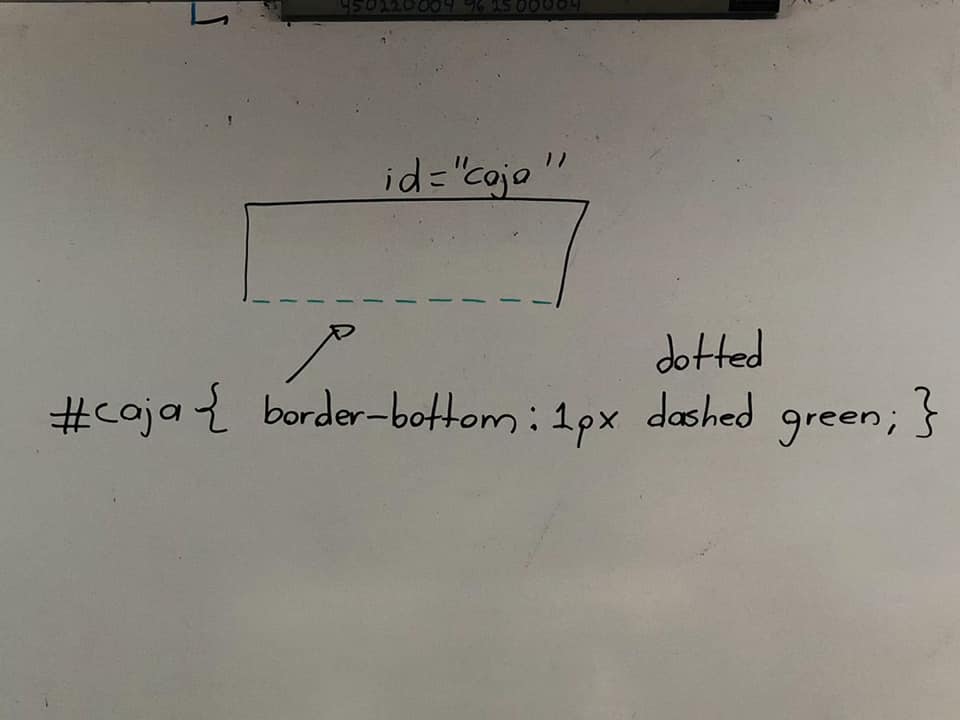 450220004 96 2500004
id="caja"
dotted
#caja { border-bottom: 1px dashed green; }